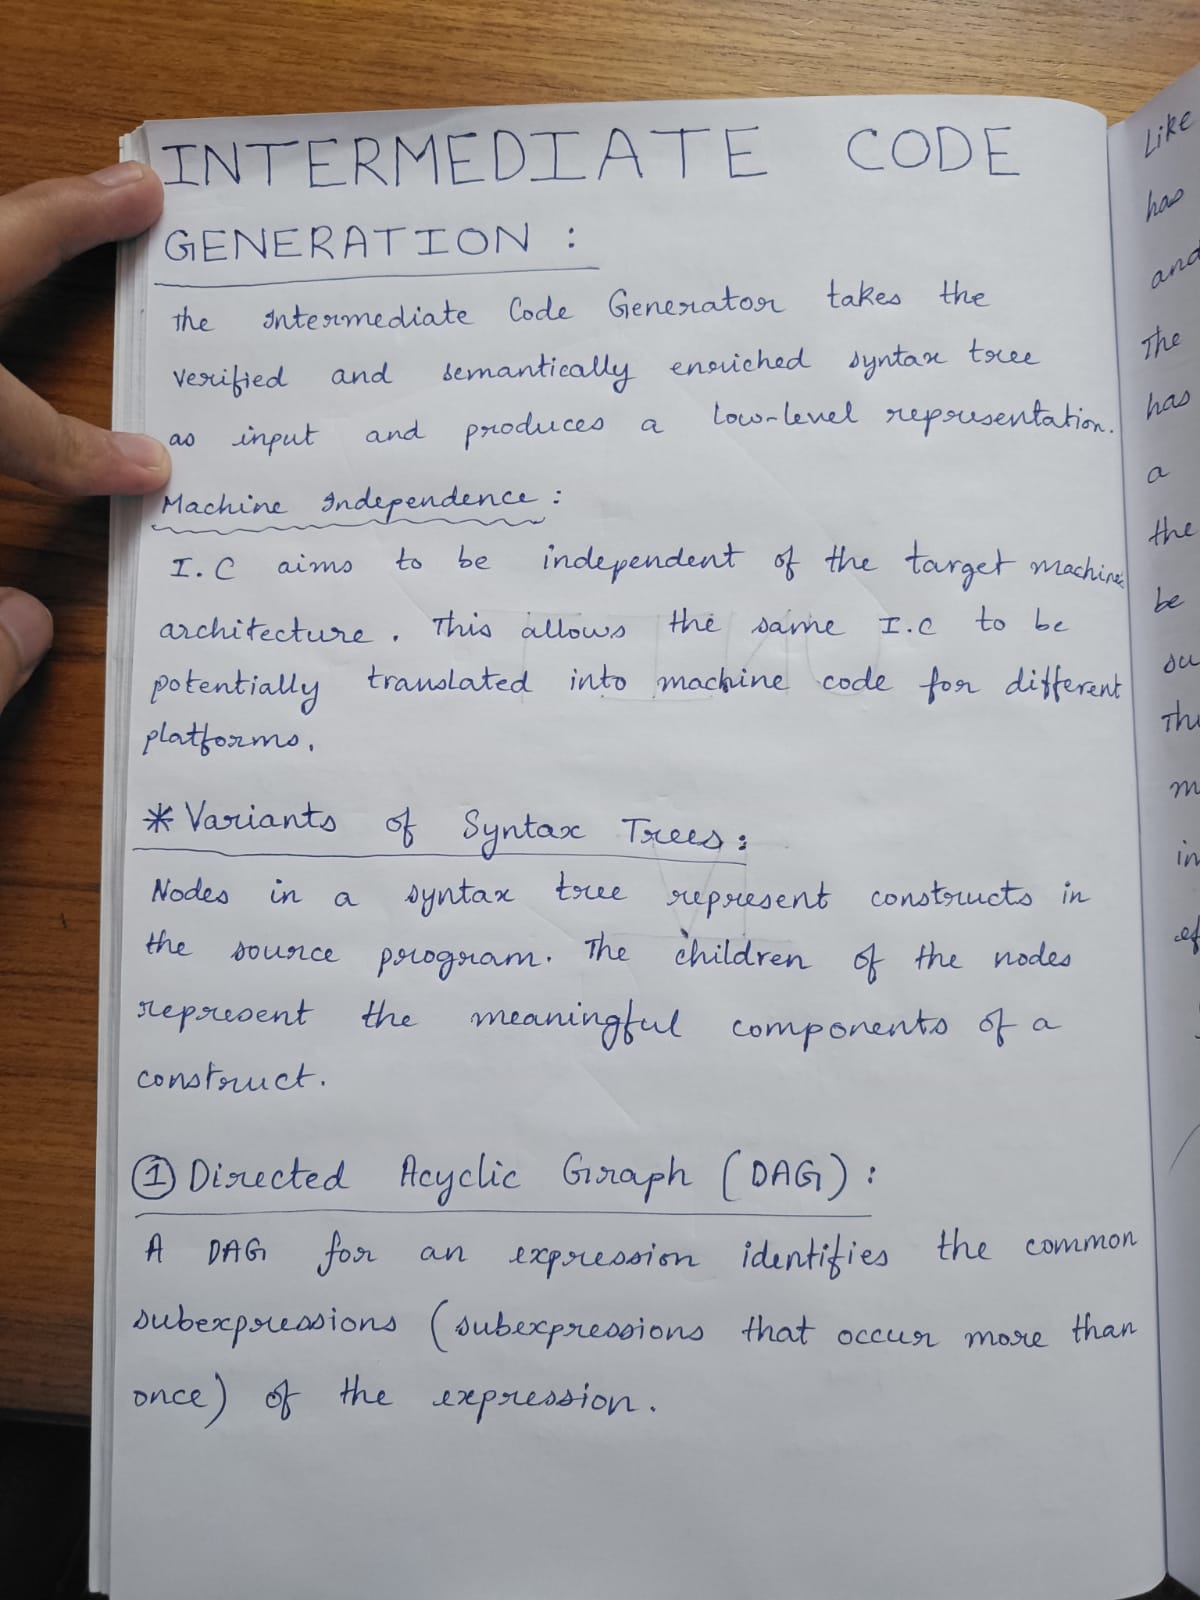 INTERMEDIATE CODE
GENERATION :
The Intermediate Code Generator takes the
verified and semantically enriched syntax tree
as input and produces a low-level representation.
Machine Independence :
I.C aims to be independent of the target machine
architecture. This allows the same I.C to be
potentially translated into machine code for different
platforms.
* Variants of Syntax Trees :
Nodes in a syntax tree represent constructs in
the source program. The children of the nodes
represent the meaningful components of a
construct.
① Directed Acyclic Graph (DAG) :
A DAG for an expression identifies the common
subexpressions (subexpressions that occur more than
once) of the expression.
Like
has
and
The
has
a
the
be
in